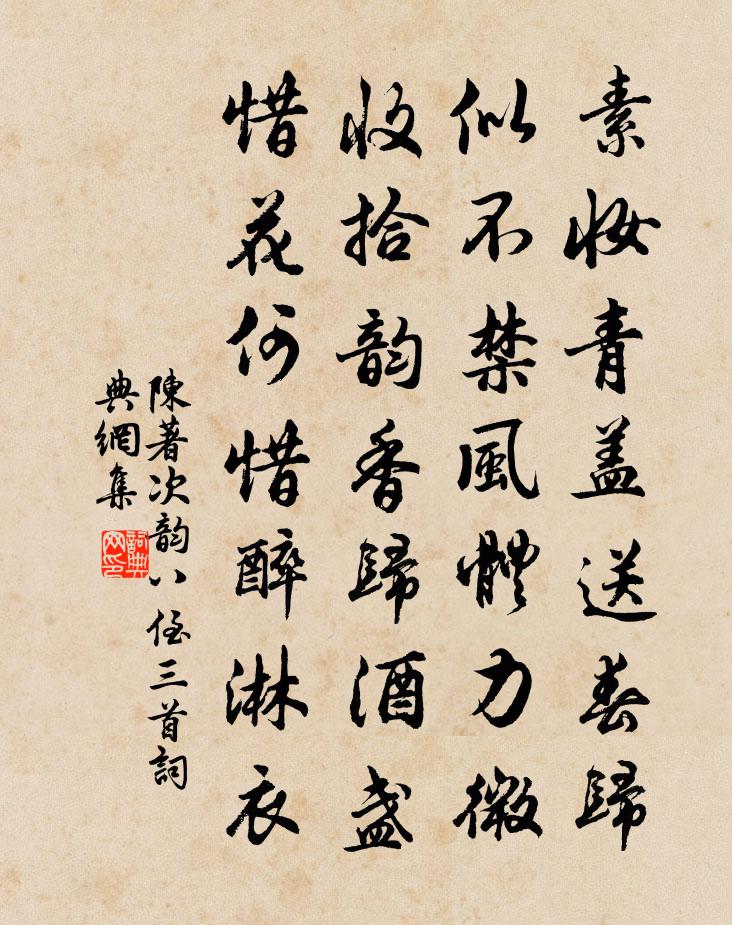 素妝青蓋送春歸
似不禁風體力微
收拾韵香歸酒盏
惜花何惜醉淋衣
陳著次韵八侄三首詞
典網集
詞典
网印